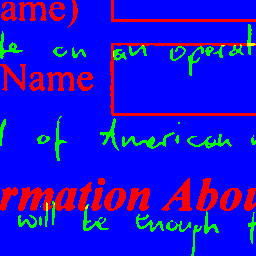 ame)
on an operat
Name
of American
rmation Abou
will be enough